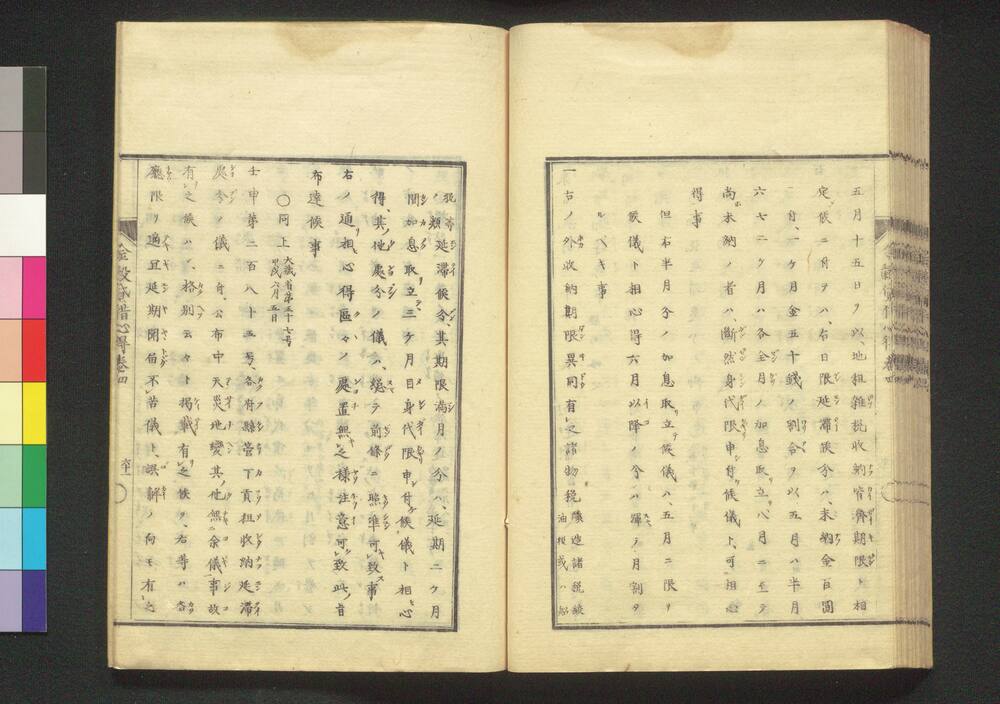 五月十五日ヲ以、地租雑税収納皆済期限ト相
定候ニ付テハ、右日限延滞候分ハ、未納金百圓
ニ付、一ヶ月金五十錢ノ割合ヲ以五月ハ半月
六七二ケ月ハ各全月ノ加息取立、八月ニ至テ
尚未納ノ者ハ、断然身代限申付候儀ト、可相心
得事
但右半月分ノ加息取立候儀ハ五月ニ限リ
候儀ト相心得六月以降ノ分ハ渾テ月割タ
ルヘキ事
一右ノ外収納期限異同有之諸物税
油税或ハ船
税等
ノ類延滞候分、其期限満月ノ分ハ、延期二ケ月
間加息取立、三ケ月目身代限申付候儀ト相心
得、其他處分ノ儀ハ、總テ前條ニ照準可致事
右ノ通相心得區々ノ處置無之様注意可致此旨
布達候事
〇同上 大蔵省第五十七号 甲戌六月五日
壬申第二百八十五号、各府縣管下貢租収納延滞
處分ノ儀ニ付、公布中天災地變其他無余儀事故
有之候ハヾ、格別云々ト掲載有之候ヲ、右等ハ各
廳限リ適宜延期聞届不苦儀ト、誤解ノ向モ有之
金穀出納心得巻四
六十一